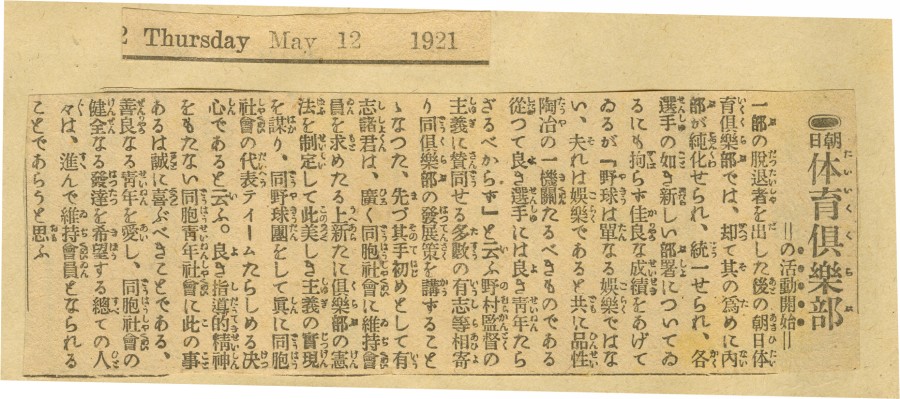 2 Thursday May 12 1921
朝日 体育倶樂部
||の活動開始||
一部の脱退者を出した後の朝日体
育倶樂部では、却て其の爲めに内
部が純化せられ、統一せられ、各
選手の如き新しい部署についてゐ
るにも拘らず佳良な成績をあげて
ゐるが『野球は單なる娯樂ではな
い、夫れは娯樂であると共に品性
陶冶の一機關たるべきものである
從つて良き選手には良き靑年たら
ざるべからず』と云ふ野村監督の
主義に賛同せる多數の有志等相寄
り同倶樂部の發展策を講ずること
ゝなつた、先づ其手初めとして有
志諸君は、廣く同胞社會に維持會
員を求めたる上新たに倶樂部の憲
法を制定して此美しき主義の實現
を謀り、同野球團をして眞に同胞
社會の代表テイームたらしめる决
心であると云ふ。良き指導的精神
をもたない同胞靑年社會に此の事
あるは誠に喜ぶべきことである、
善良なる靑年を愛し、同胞社會の
健全なる發達を希望する總ての人
々は、進んで維持會員となられる
ことであらうと思ふ